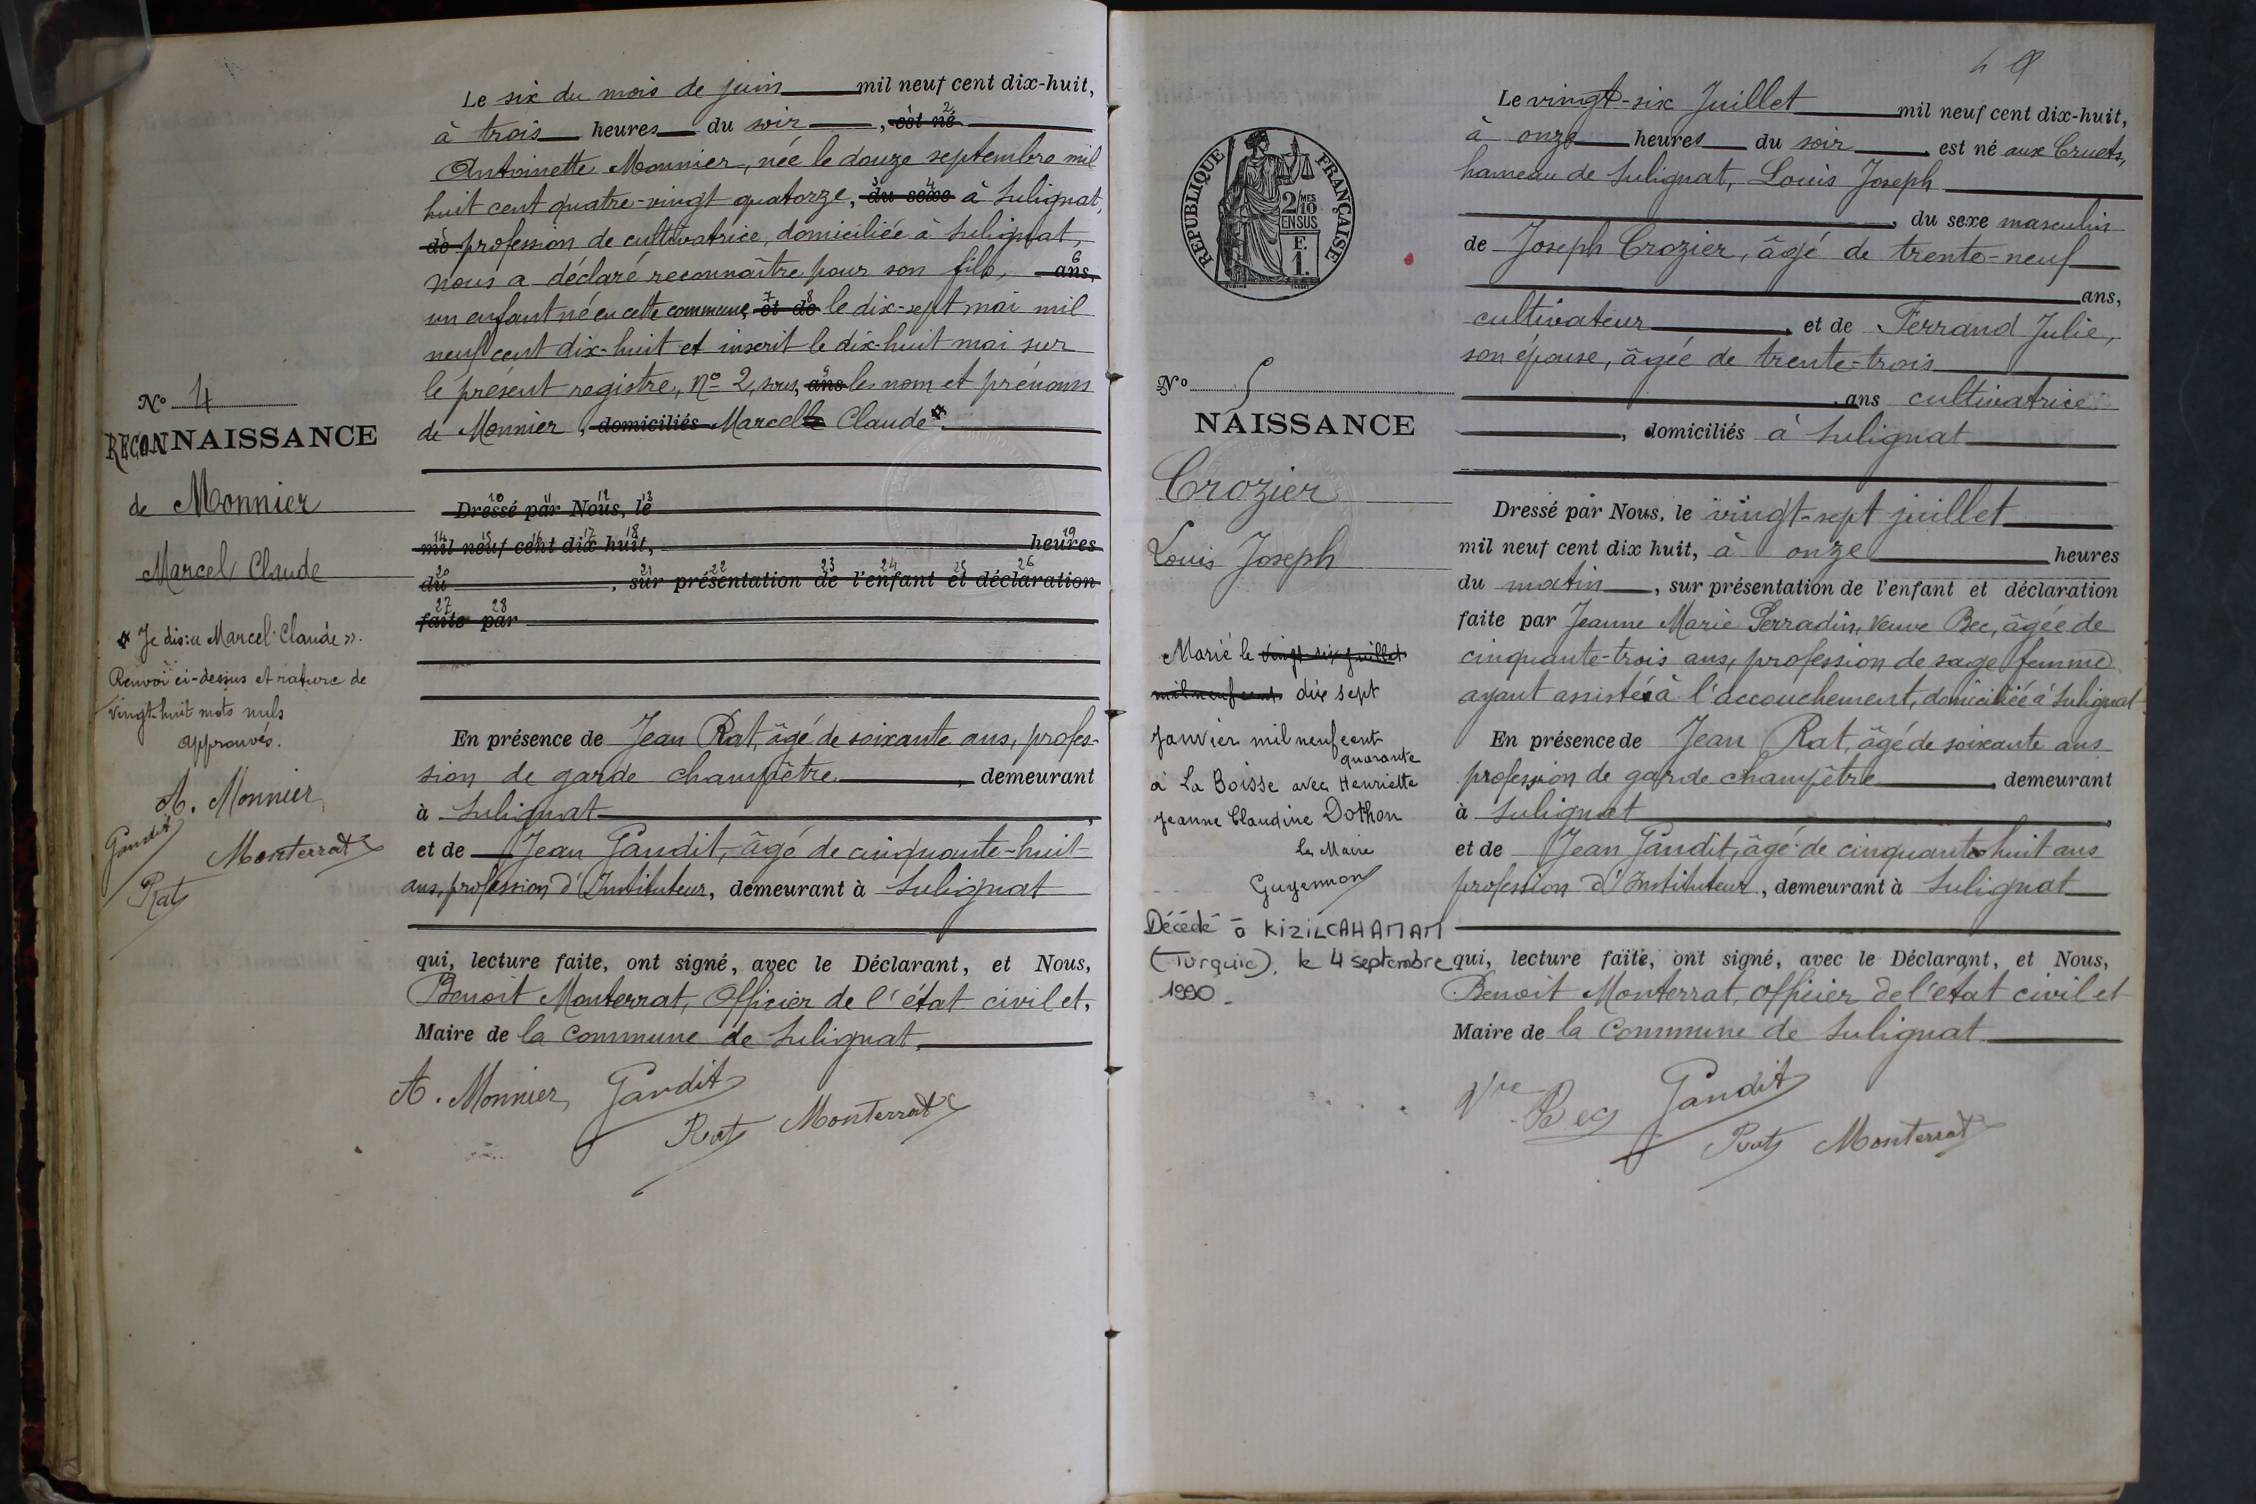 Le six du mois de juin mil neuf cent dix-huit,
à trois heures du soir, est né 2
Antoinette Monnier, née le douze septembre mil
huit cent quatre-vingt quatorze, du sexe à Sulignat,
de profession de cultivatrice, domiciliée à Sulignat,
nous a déclaré reconnaître pour son fils, ans, 6
un enfant né en cette commune, et de le dix-sept mai mil
neuf cent dix-huit et inscrit le dix-huit mai sur
le présent registre, No 2, sous, ans les nom et prénoms
de Monnier, domiciliés Marcel Claude
No 4
RECONNAISSANCE
de Monnier
Marcel Claude
Je dis: « Marcel Claude ».
Renvoi ci-dessus et rature de
vingt-huit mots nuls
approuvés.
A. Monnier
Gandit
Monterrat
Rat
10 11 12 13
Dressé par Nous, le
14 15 16 17 18 19
mil neuf cent dix huit, heures
20 21 22 23 24 25 26
du, sur présentation de l'enfant et déclaration
27 28
faite par
En présence de Jean Rat, âgé de soixante ans, profes-
sion de garde champêtre, demeurant
à Sulignat
et de Jean Gandit, âgé de cinquante-huit
ans, profession d'Instituteur, demeurant à Sulignat
qui, lecture faite, ont signé, avec le Déclarant, et Nous,
Benoit Monterrat, Officier de l'état civil et,
Maire de la Commune de Sulignat.
A. Monnier Gandit
Rat Monterrat
REPUBLIQUE FRANÇAISE
2 MES
10
EN SUS
F.
1.
No 5
NAISSANCE
Crozier
Louis Joseph
Marié le vingt-six juillet
mil neuf cent dix sept
Janvier mil neuf cent
quarante
à La Boisse avec Henriette
Jeanne Claudine Dothon
Le Maire
Guyennon
Décédé à KIZILCAHAMAM
(Turquie), le 4 septembre
1990.
Le vingt-six Juillet mil neuf cent dix-huit,
à onze heures du soir est né aux Cruets,
hameau de Sulignat, Louis Joseph
, du sexe masculin
de Joseph Crozier, âgé de trente-neuf
ans,
cultivateur, et de Ferrand Julie,
son épouse, âgée de trente-trois
ans cultivatrice
, domiciliés à Sulignat
Dressé par Nous, le vingt-sept juillet
mil neuf cent dix huit, à onze heures
du matin, sur présentation de l'enfant et déclaration
faite par Jeanne Marie Perradin, Veuve Bec, âgée de
cinquante-trois ans, profession de sage femme
ayant assisté à l'accouchement, domiciliée à Sulignat
En présence de Jean Rat, âgé de soixante ans
profession de garde champêtre, demeurant
à Sulignat
et de Jean Gandit, âgé de cinquante huit ans
profession d'Instituteur, demeurant à Sulignat
qui, lecture faite, ont signé, avec le Déclarant, et Nous,
Benoit Monterrat, officier de l'état civil et
Maire de la Commune de Sulignat
Vve Bec Gandit
Rat Monterrat